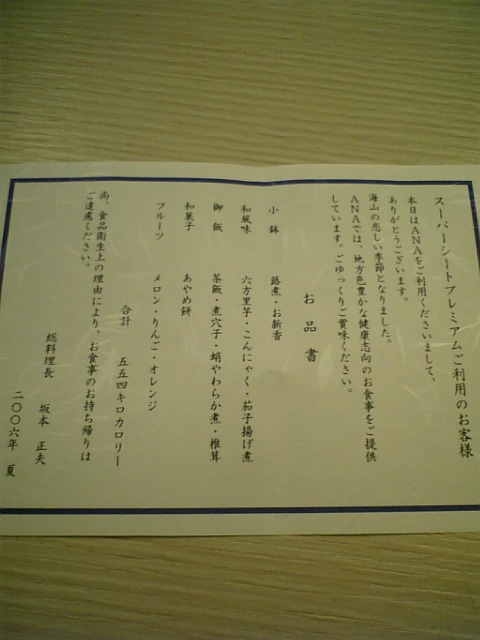 スーパーシートプレミアムご利用のお客様
本日はANAをご利用くださいまして、
ありがとうございます。
海山の恋しい季節となりました。
ANAでは、地方色豊かな健康志向のお食事をご提供
しています。ごゆっくりご賞味ください。
お品書
小鉢 蕗煮・お新香
和風味 六方里芋・こんにゃく・茄子揚げ煮
御飯 茶飯・煮穴子・蛸やわらか煮・椎茸
和菓子 あやめ餅
フルーツ メロン・りんご・オレンジ
合計 五五四キロカロリー
尚、食品衛生上の理由により、お食事のお持ち帰りは
ご遠慮ください。
総料理長 坂本 正夫
二〇〇六年 夏